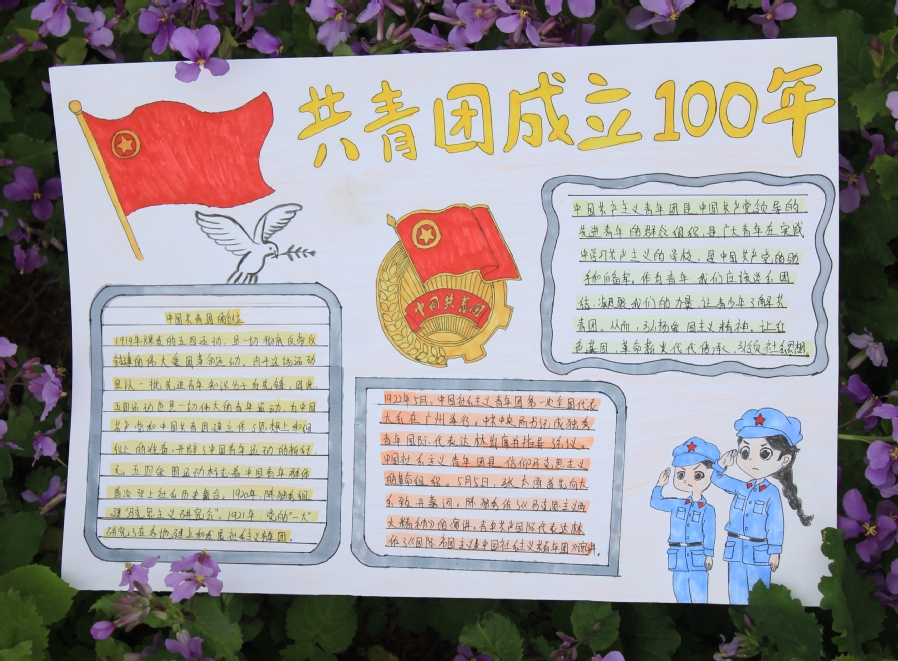 共青团成立100年
中国共青团
中国共产主义青年团是中国共产党领导的
先进青年的群众组织,是广大青年在实践
中学习共产主义的学校,是中国共产党的助
手和后备军。作为青年,我们应该进行团
结,凝聚我们的力量,让青少年了解共
青团,从而,弘扬爱国主义精神,让红
色基因,革命薪火代代传承,
中国共青团的创立
1919年爆发的五四运动,是一切彻底反帝反
封建的伟大爱国革命运动,由于这场运动
是以一批先进青年知识分子为先锋,因此
五四运动也是一切伟大的青年运动,为中国
共产党和中国共青团建立作了思想上和组
织上的准备,开辟了中国青年运动的
五四爱国运动标志着中国青年群体
首次登上社会历史舞台。1920年,陈独秀组
建"马克思主义研究会",1921年,党的"一大"
研究了在各地建立和发展社会主义青年团
1922年5月,中国社会主义青年团第一次全国代表
大会在广州举行,中共中央局书记陈独秀
青年国际代表达林出席并指导会议。
中国社会主义青年团是信仰马克思主义
的革命组织,5月5日,张太雷首先向大
会致开幕词,陈独秀作《马克思主义两
大精神》的演讲,青年共产国际代表达林
作《国际帝国主义与中国社会主义青年团》演讲。